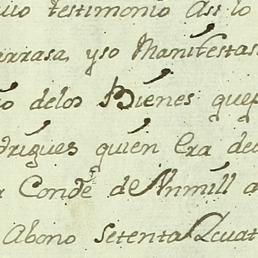 testimonio Asi lo
yso Manifestas
delos Bienes que
drigues quien Era de
Conde de Anmill a
Abono Setenta Quat